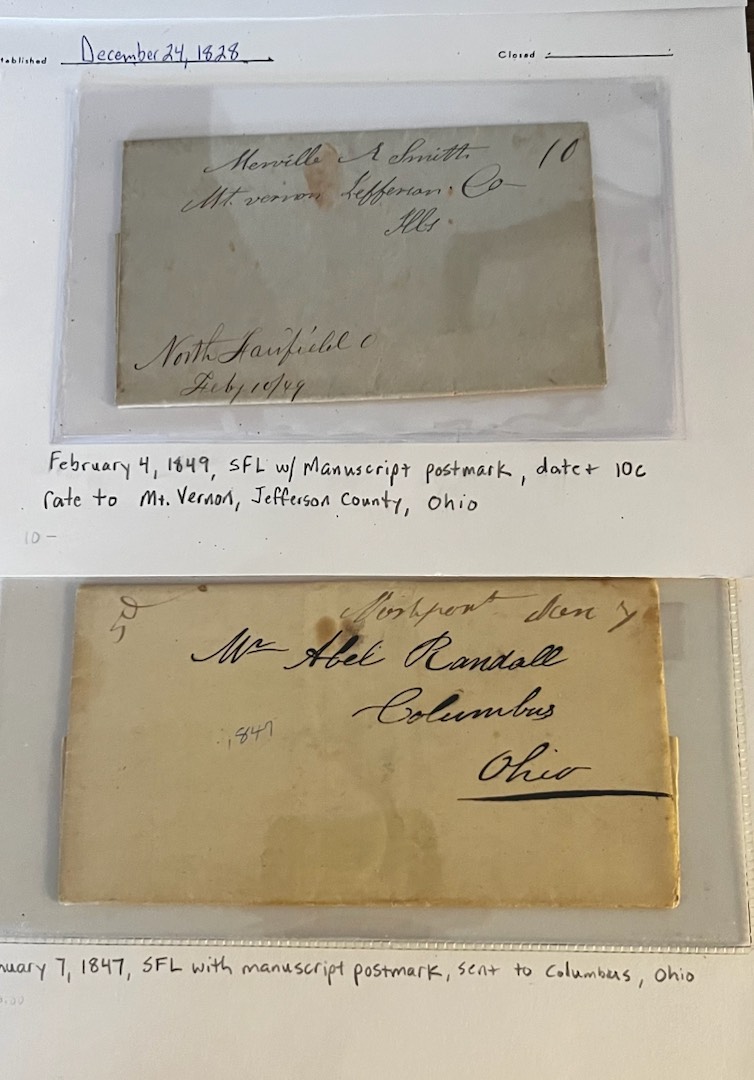 tablished December 24, 1828. Closed
Merville A Smith 10
Mt. vernon Jefferson. Co
Ills.
North Fairfield O
Feby 10/49
February 4, 1849, SFL w/ Manuscript postmark, date + 10c
rate to Mt. Vernon, Jefferson County, Ohio
10-
5 Jan 7
Mr Abel Randall
Columbus
1847
Ohio
nuary 7, 1847, SFL with manuscript postmark, sent to Columbus, Ohio